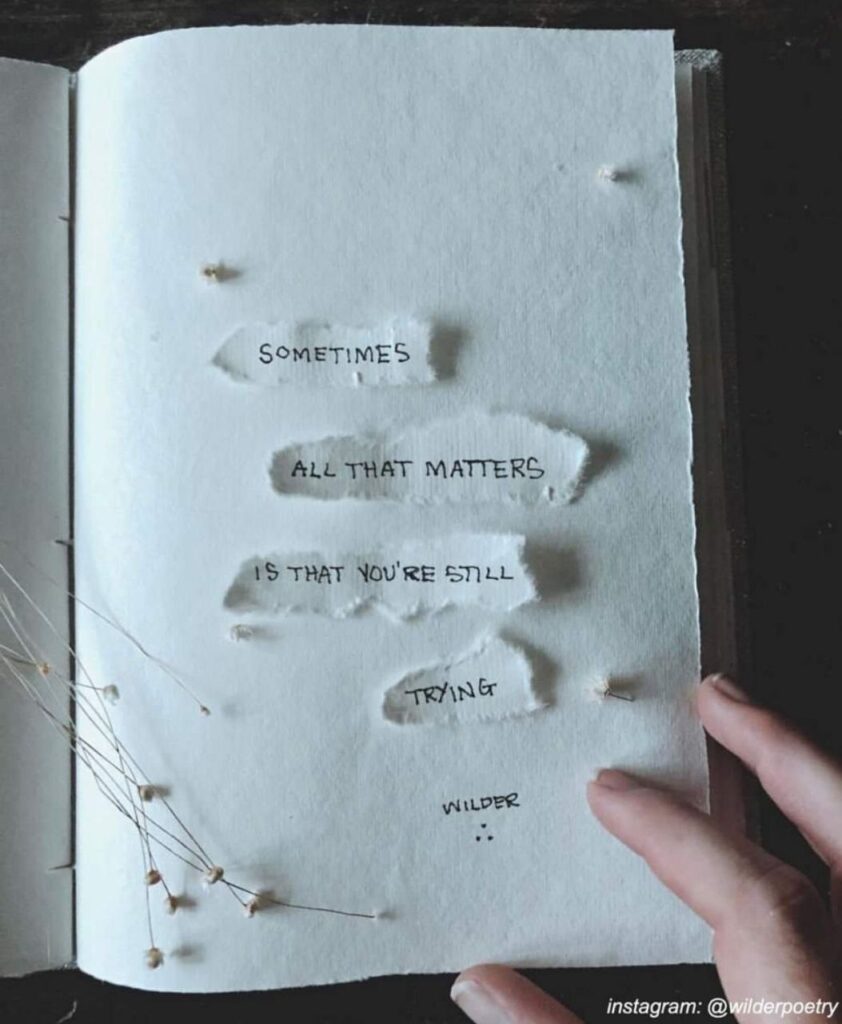 SOMETIMES
ALL THAT MATTERS
IS THAT YOU'RE STILL
TRYING
WILDER
instagram: @wilderpoetry